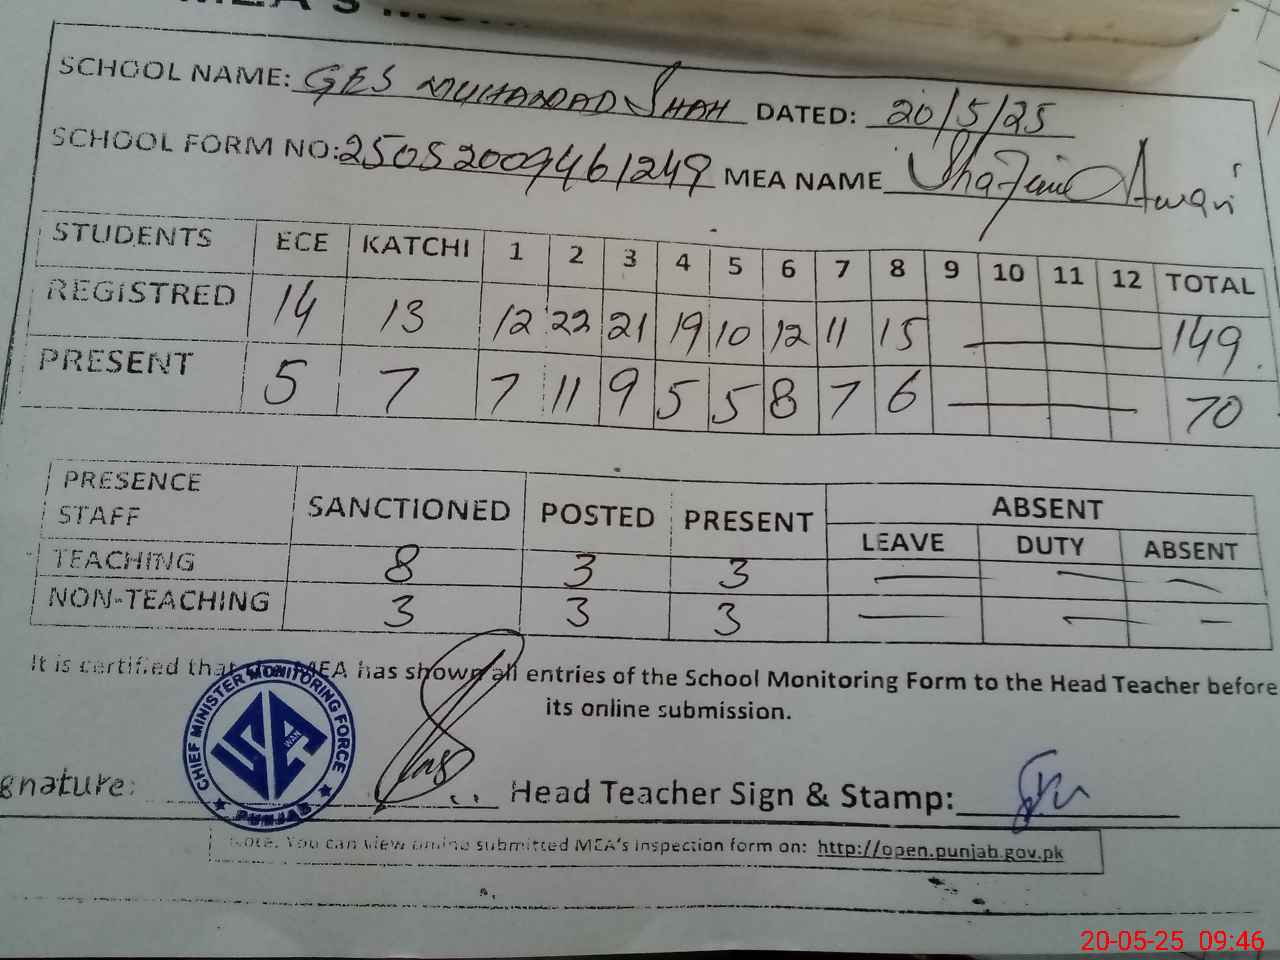 SCHOOL NAME: GES MUHAMMAD SHAH DATED: 20/5/25
SCHOOL FORM NO: 25052009461249 MEA NAME Awan
STUDENTS ECE KATCHI 1 2 3 4 5 6 7 8 9 10 11 12 TOTAL
REGISTRED 14 13 12 22 21 19 10 12 11 15 — 149
PRESENT 5 7 7 11 9 5 5 8 7 6 — 70
PRESENCE STAFF SANCTIONED POSTED PRESENT ABSENT
LEAVE DUTY ABSENT
TEACHING 8 3 3 — — —
NON-TEACHING 3 3 3 — — —
It is certified that MEA has shown all entries of the School Monitoring Form to the Head Teacher before
its online submission.
CHIEF MINISTER MONITORING FORCE
WAN
PUNJAB
gnature: Head Teacher Sign & Stamp:
Note. You can view online submitted MEA's inspection form on: http://open.punjab.gov.pk
20-05-25 09:46